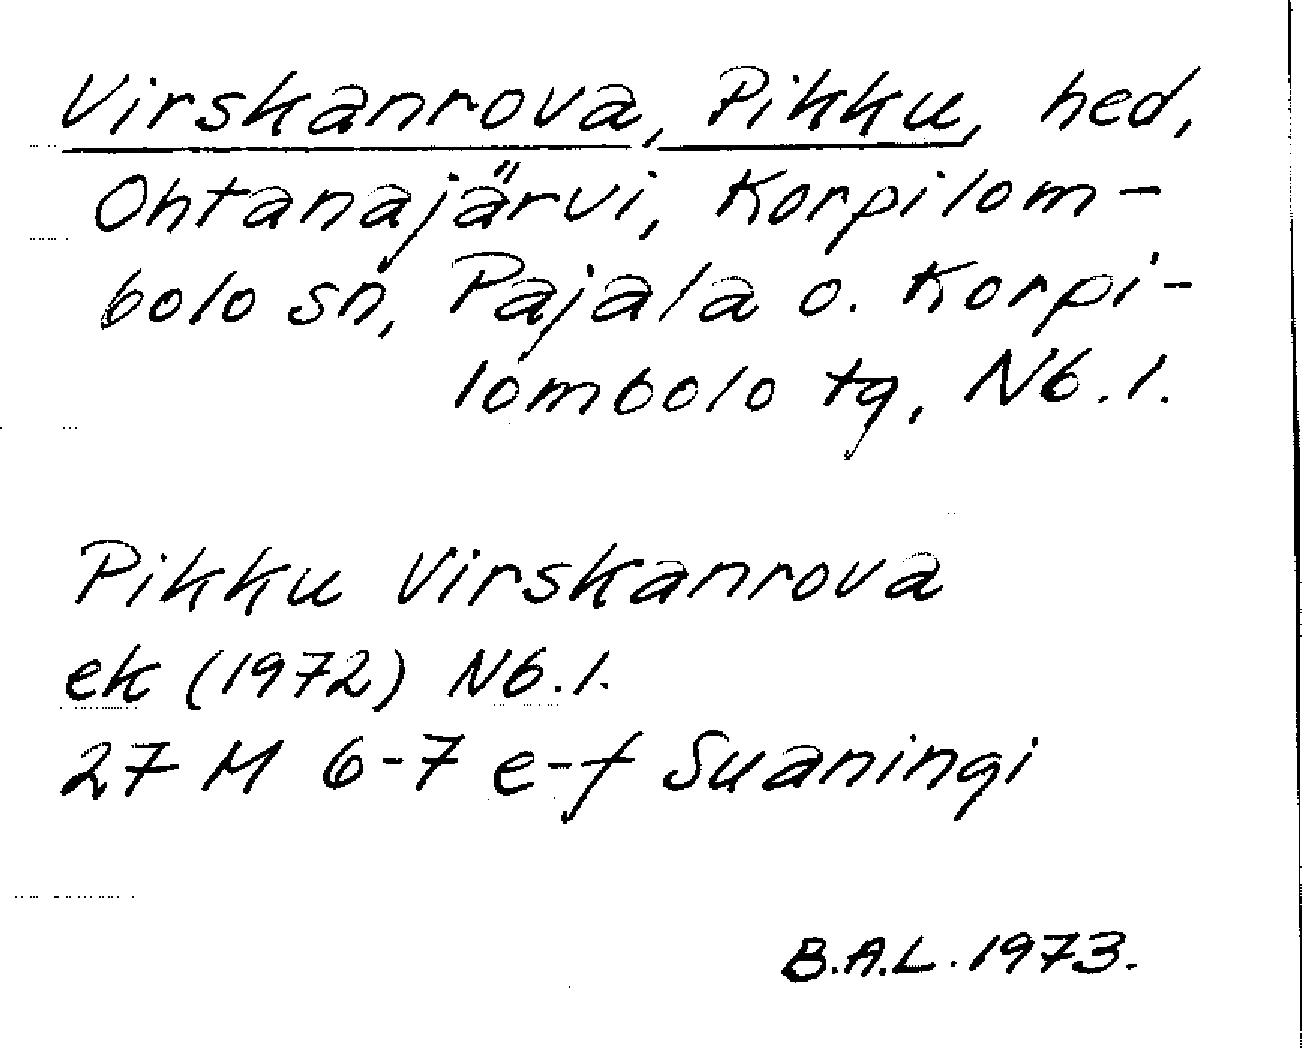 Virskanrova, Pikku, hed,
Ohtanajärvi, Korpilom-
bolo sn, Pajala o. Korpi-
lombolo tg, Nb.l.
Pikku Virskanrova
ek (1972) Nb.l.
27 M 6-7 e-f Suaningi
B.A.L. 1973.